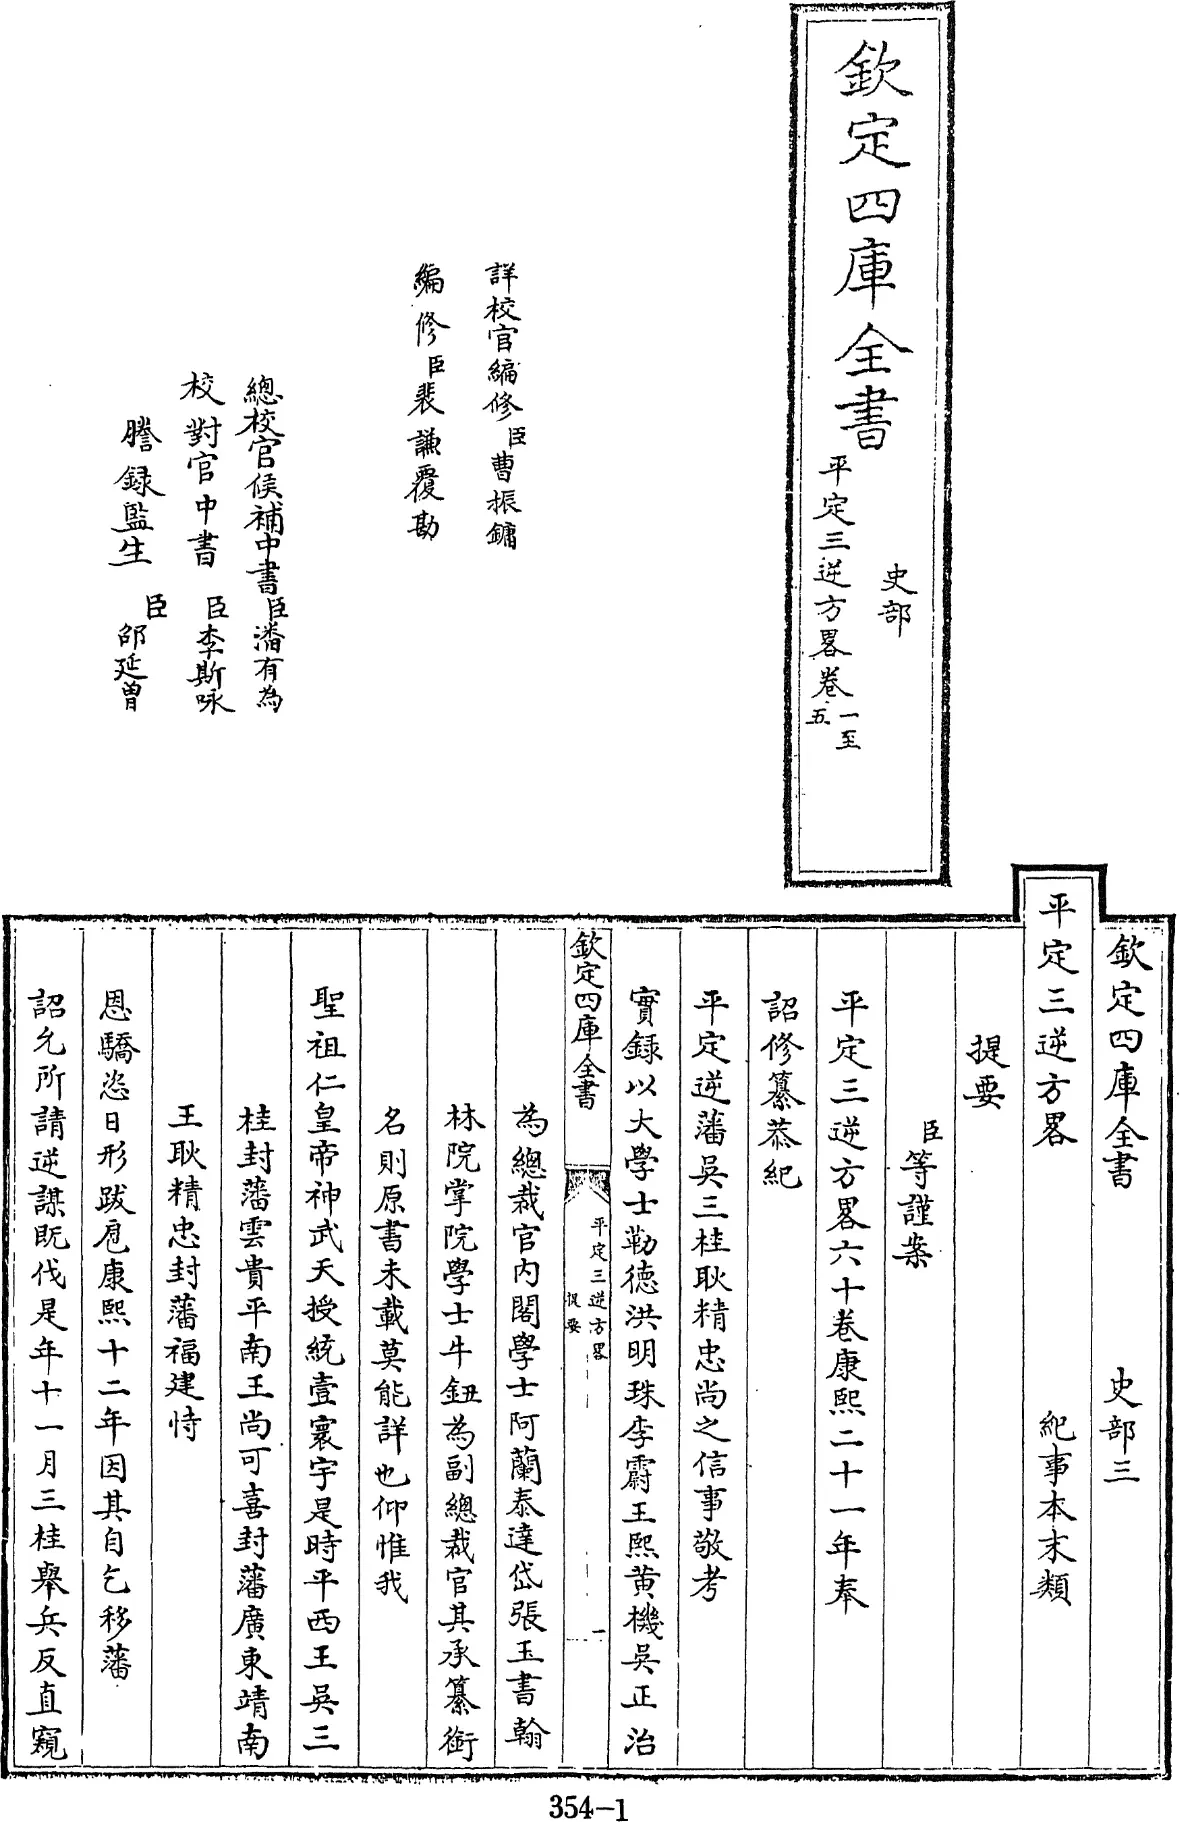 欽定四庫全書
史部
平定三逆方畧卷一至五
詳校官編修臣曹振鏞
編修臣裴謙覆勘
總校官候補中書臣潘有為
校對官中書臣李斯咏
謄録監生臣邵延曾
欽定四庫全書 史部三
平定三逆方畧 紀事本末類
提要
臣等謹案
平定三逆方畧六十卷康熙二十一年奉
詔修纂恭紀
平定逆藩吳三桂耿精忠尚之信事敬考
實録以大學士勒德洪明珠李霨王熙黄機吳正治
欽定四庫全書
平定三逆方畧
提要
一
為總裁官内閣學士阿蘭泰達岱張玉書翰
林院掌院學士牛鈕為副總裁官其承纂銜
名則原書未載莫能詳也仰惟我
聖祖仁皇帝神武天授統壹寰宇是時平西王吳三
桂封藩雲貴平南王尚可喜封藩廣東靖南
王耿精忠封藩福建恃
恩驕恣日形跋扈康熙十二年因其自乞移藩
詔允所請逆謀既伐是年十一月三桂舉兵反直窺
354-1